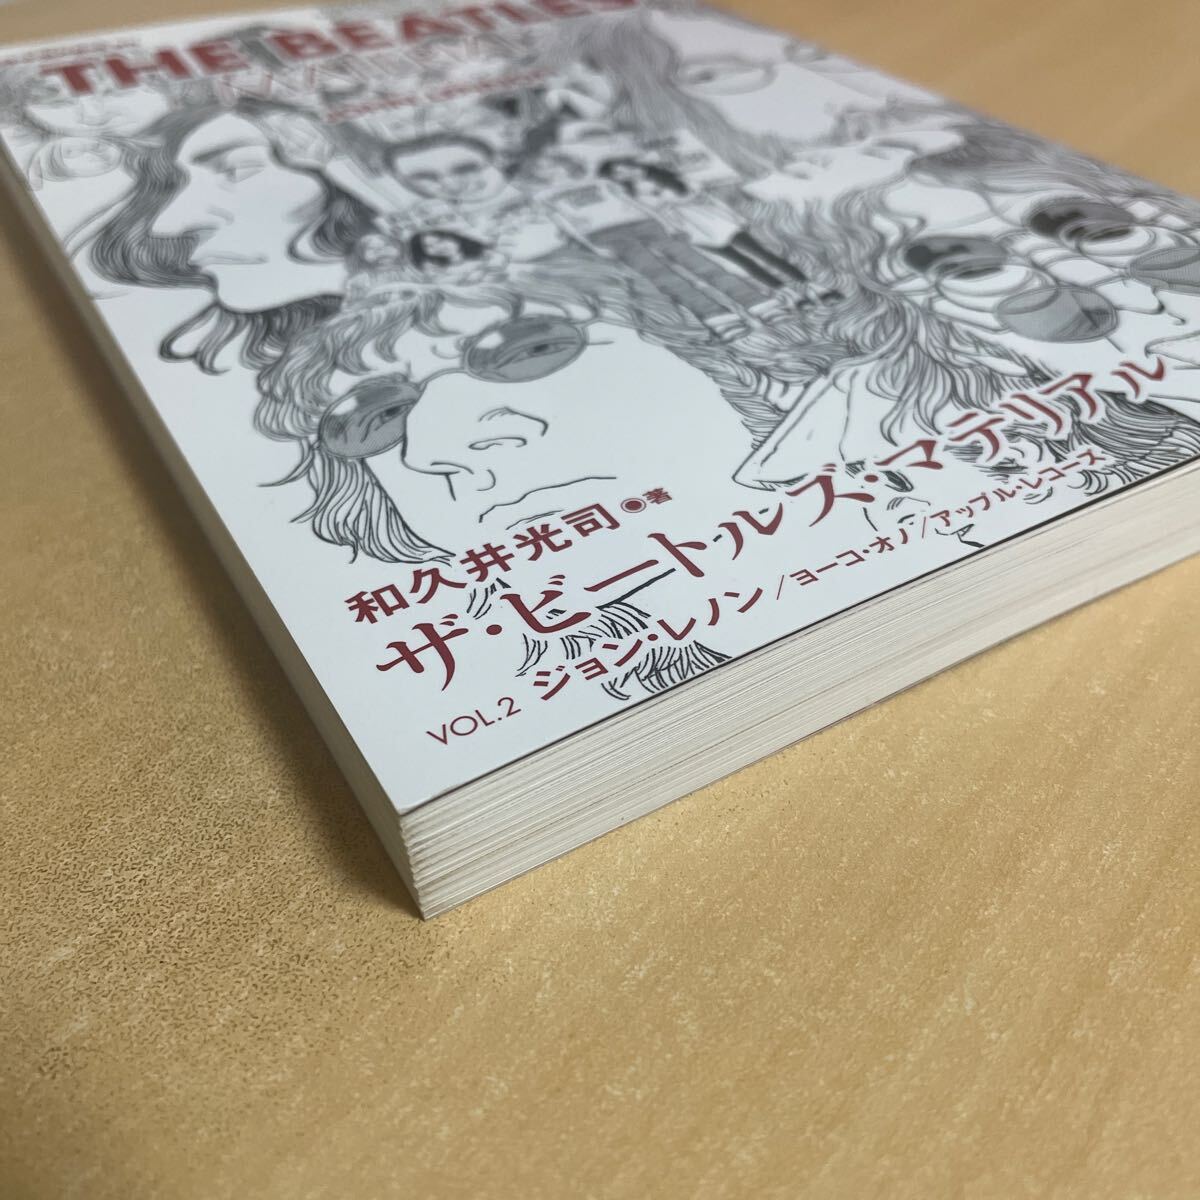 THE BEATLES
MATERIAL
和久井光司◉著
ザ・ビートルズ・マテリアル
VOL.2 ジョン・レノン/ヨーコ・オノ/アップル・レコーズ